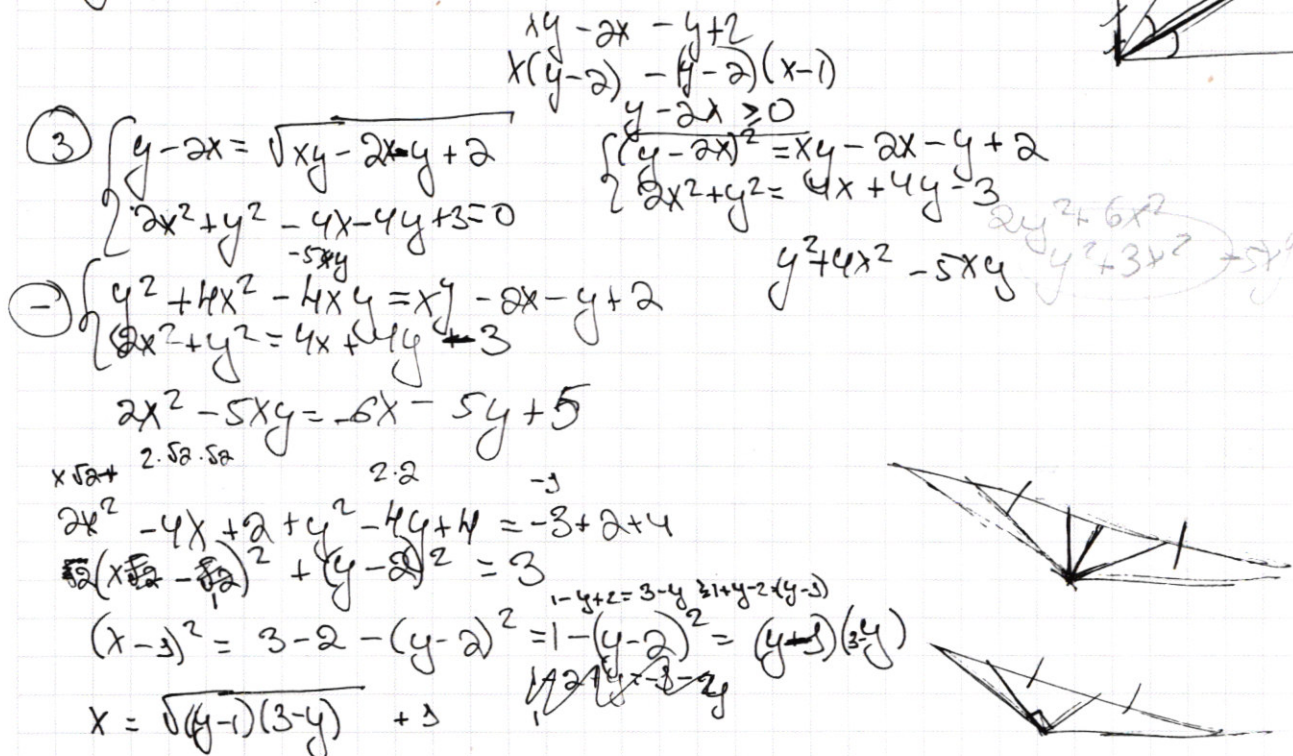 xy - 2x - y + 2
x(y-2) - (y-2)(x-1)
y - 2x ≥ 0
③ { y - 2x = √(xy - 2x - y + 2)
2x² + y² - 4x - 4y + 3 = 0
{ (y - 2x)² = xy - 2x - y + 2
2x² + y² = 4x + 4y - 3
2y² + 6x²
y² + 3x² - 5xy
y² + 4x² - 5xy
-5xy
⊖ { y² + 4x² - 4xy = xy - 2x - y + 2
2x² + y² = 4x + 4y - 3
2x² - 5xy = -6x - 5y + 5
x√2+ 2·√2·√2 2·2 -1
2x² - 4x + 2 + y² - 4y + 4 = -3 + 2 + 4
2(x - 1)² + (y - 2)² = 3
1 - y + 2 = 3 - y 1 + y - 2 (y-1)
(x-1)² = 3 - 2 - (y-2)² = 1 - (y-2)² = (y-1)(3-y)
x = √((y-1)(3-y)) + 1